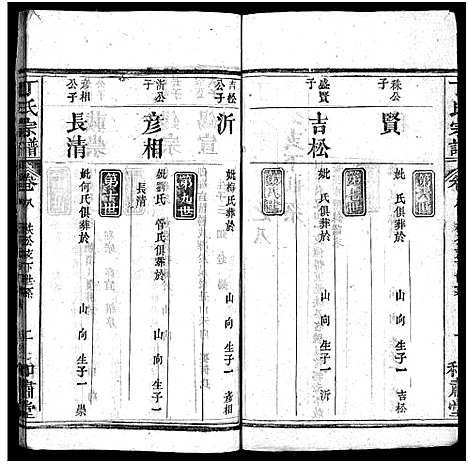 丁氏宗譜
卷八
秩公子
賢
妣 氏俱葬於 山 向 生子一 吉松
盛賢子
吉松
第八世
妣 氏俱葬於 山 向 生子一 沂
吉松公子
沂
妣梅氏葬於 山 向 生子一 彦相
第九世
沂公子
彦相
妣劉氏 管氏俱葬於 山 向 生子一 長清
彦相公子
長清
妣何氏俱葬於 山 向 生子一 崇
丁氏宗譜
卷八
秩公支下世系
和肅堂